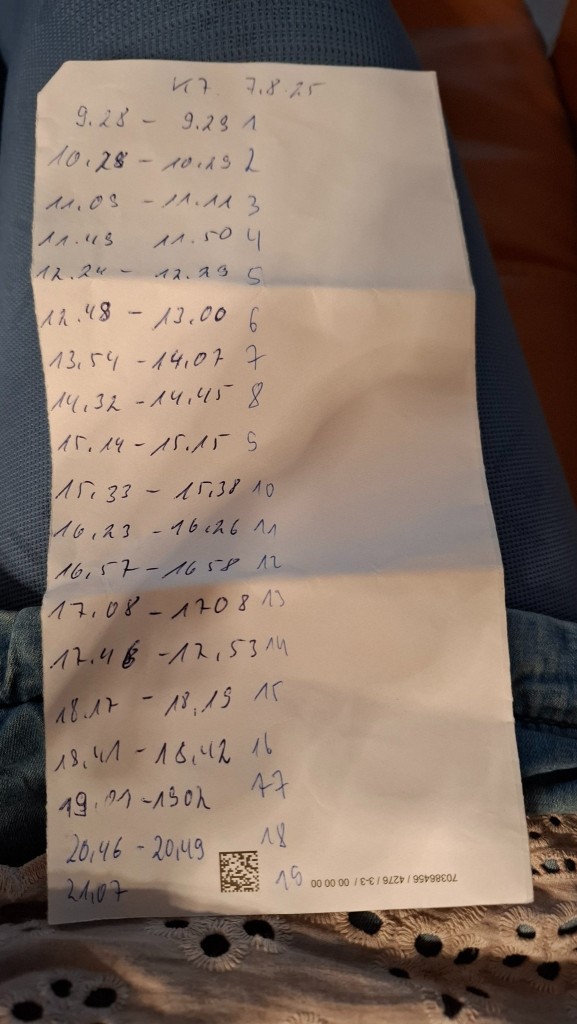 K7. 7.8.25
9.28 - 9.29 1
10,28 - 10,29 2
11.09 - 11.11 3
11.49 11.50 4
12.24 - 12.29 5
12.48 - 13.00 6
13,54 - 14,07 7
14,32 - 14,45 8
15.14 - 15.15 9
15,33 - 15,38 10
16,23 - 16,26 11
16,57 - 16 58 12
17,08 - 17 08 13
17.46 - 17,53 14
18.17 - 18,19 15
18,41 - 18,42 16
19,01 - 1902 17
20,46 - 20,49 18
21,07 19
70386456 / 4276 / 3-3 / 00 00 00